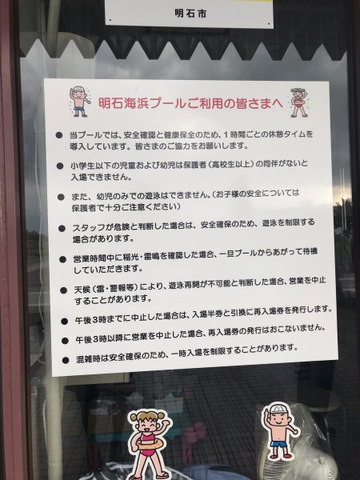 明石市
明石海浜プールご利用の皆さまへ
● 当プールでは、安全確認と健康保全のため、1時間ごとの休憩タイムを
導入しています。皆さまのご協力をお願いします。
● 小学生以下の児童および幼児は保護者(高校生以上)の同伴がないと
入場できません。
● また、幼児のみでの遊泳はできません。(お子様の安全については
保護者で十分ご注意ください)
● スタッフが危険と判断した場合は、安全確保のため、遊泳を制限する
場合があります。
● 営業時間中に稲光・雷鳴を確認した場合、一旦プールからあがって待機
していただきます。
● 天候(雷・警報等)により、遊泳再開が不可能と判断した場合、営業を中止
することがあります。
● 午後3時までに中止した場合は、入場半券と引換に再入場券を発行します。
● 午後3時以降に営業を中止した場合、再入場券の発行はおこないません。
● 混雑時は安全確保のため、一時入場を制限することがあります。